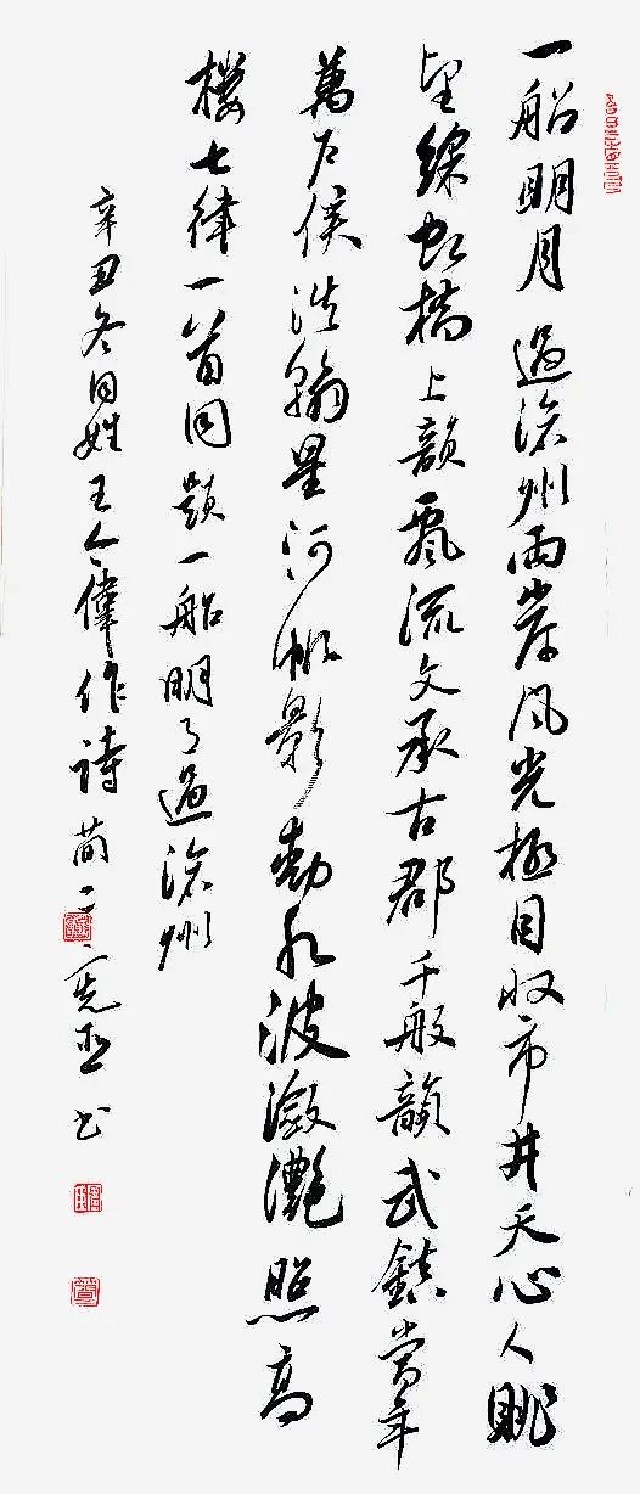 一船明月過滄州兩岸風光極目收市井天心人眺
望綵虹橋上韻飄流文承古郡千般韻武鎮當年
萬戶侯浩瀚星河帆影動水波瀲灩照高
樓七律一首同題一船明月過滄州
辛丑冬同姓王偉作詩書